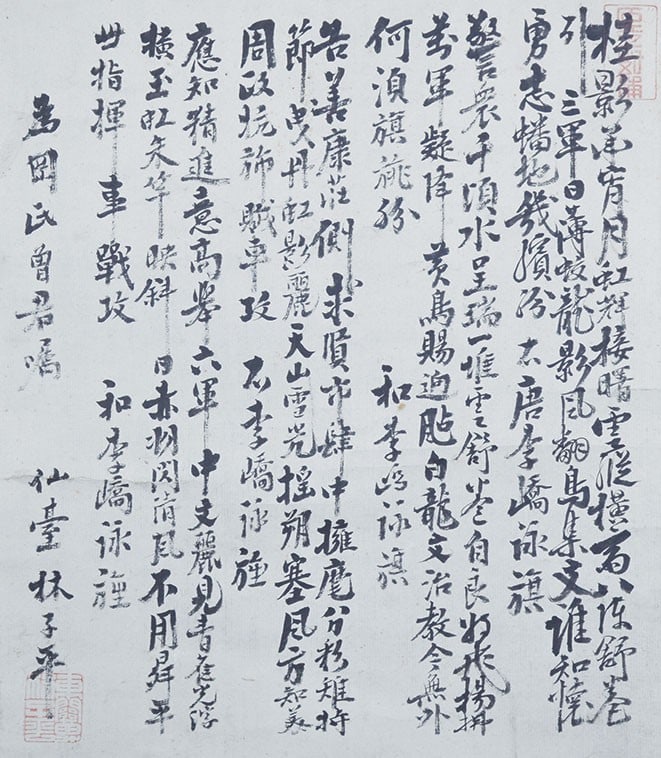 桂影承宵月虹輝接曙雲縱橫百八陣舒卷
引三軍日薄蛟龍影風翻鳥隼文誰知懷
勇志蟠地幾繽紛 右唐李嶠詠旗
警衆千頃水呈瑞一堆雲舒卷自良將飛揚
萬軍疑降黃鳥賜迎 白龍文治教今無外
何須旗旐紛 和李嶠詠旗
告善康莊側求賢市肆中擁麾分彩雉持
節曳丹虹影麗天山雪光搖朔塞風方知美
周政抗旆賦車攻 右李嶠詠旌
應知精進意高舉六軍中文麗見青雀光浮
橫玉虹 竿映斜日赤羽閃清風不用昇平
世指揮車戰攻 和李嶠詠旌
為岡氏曾君囑 仙臺林子平